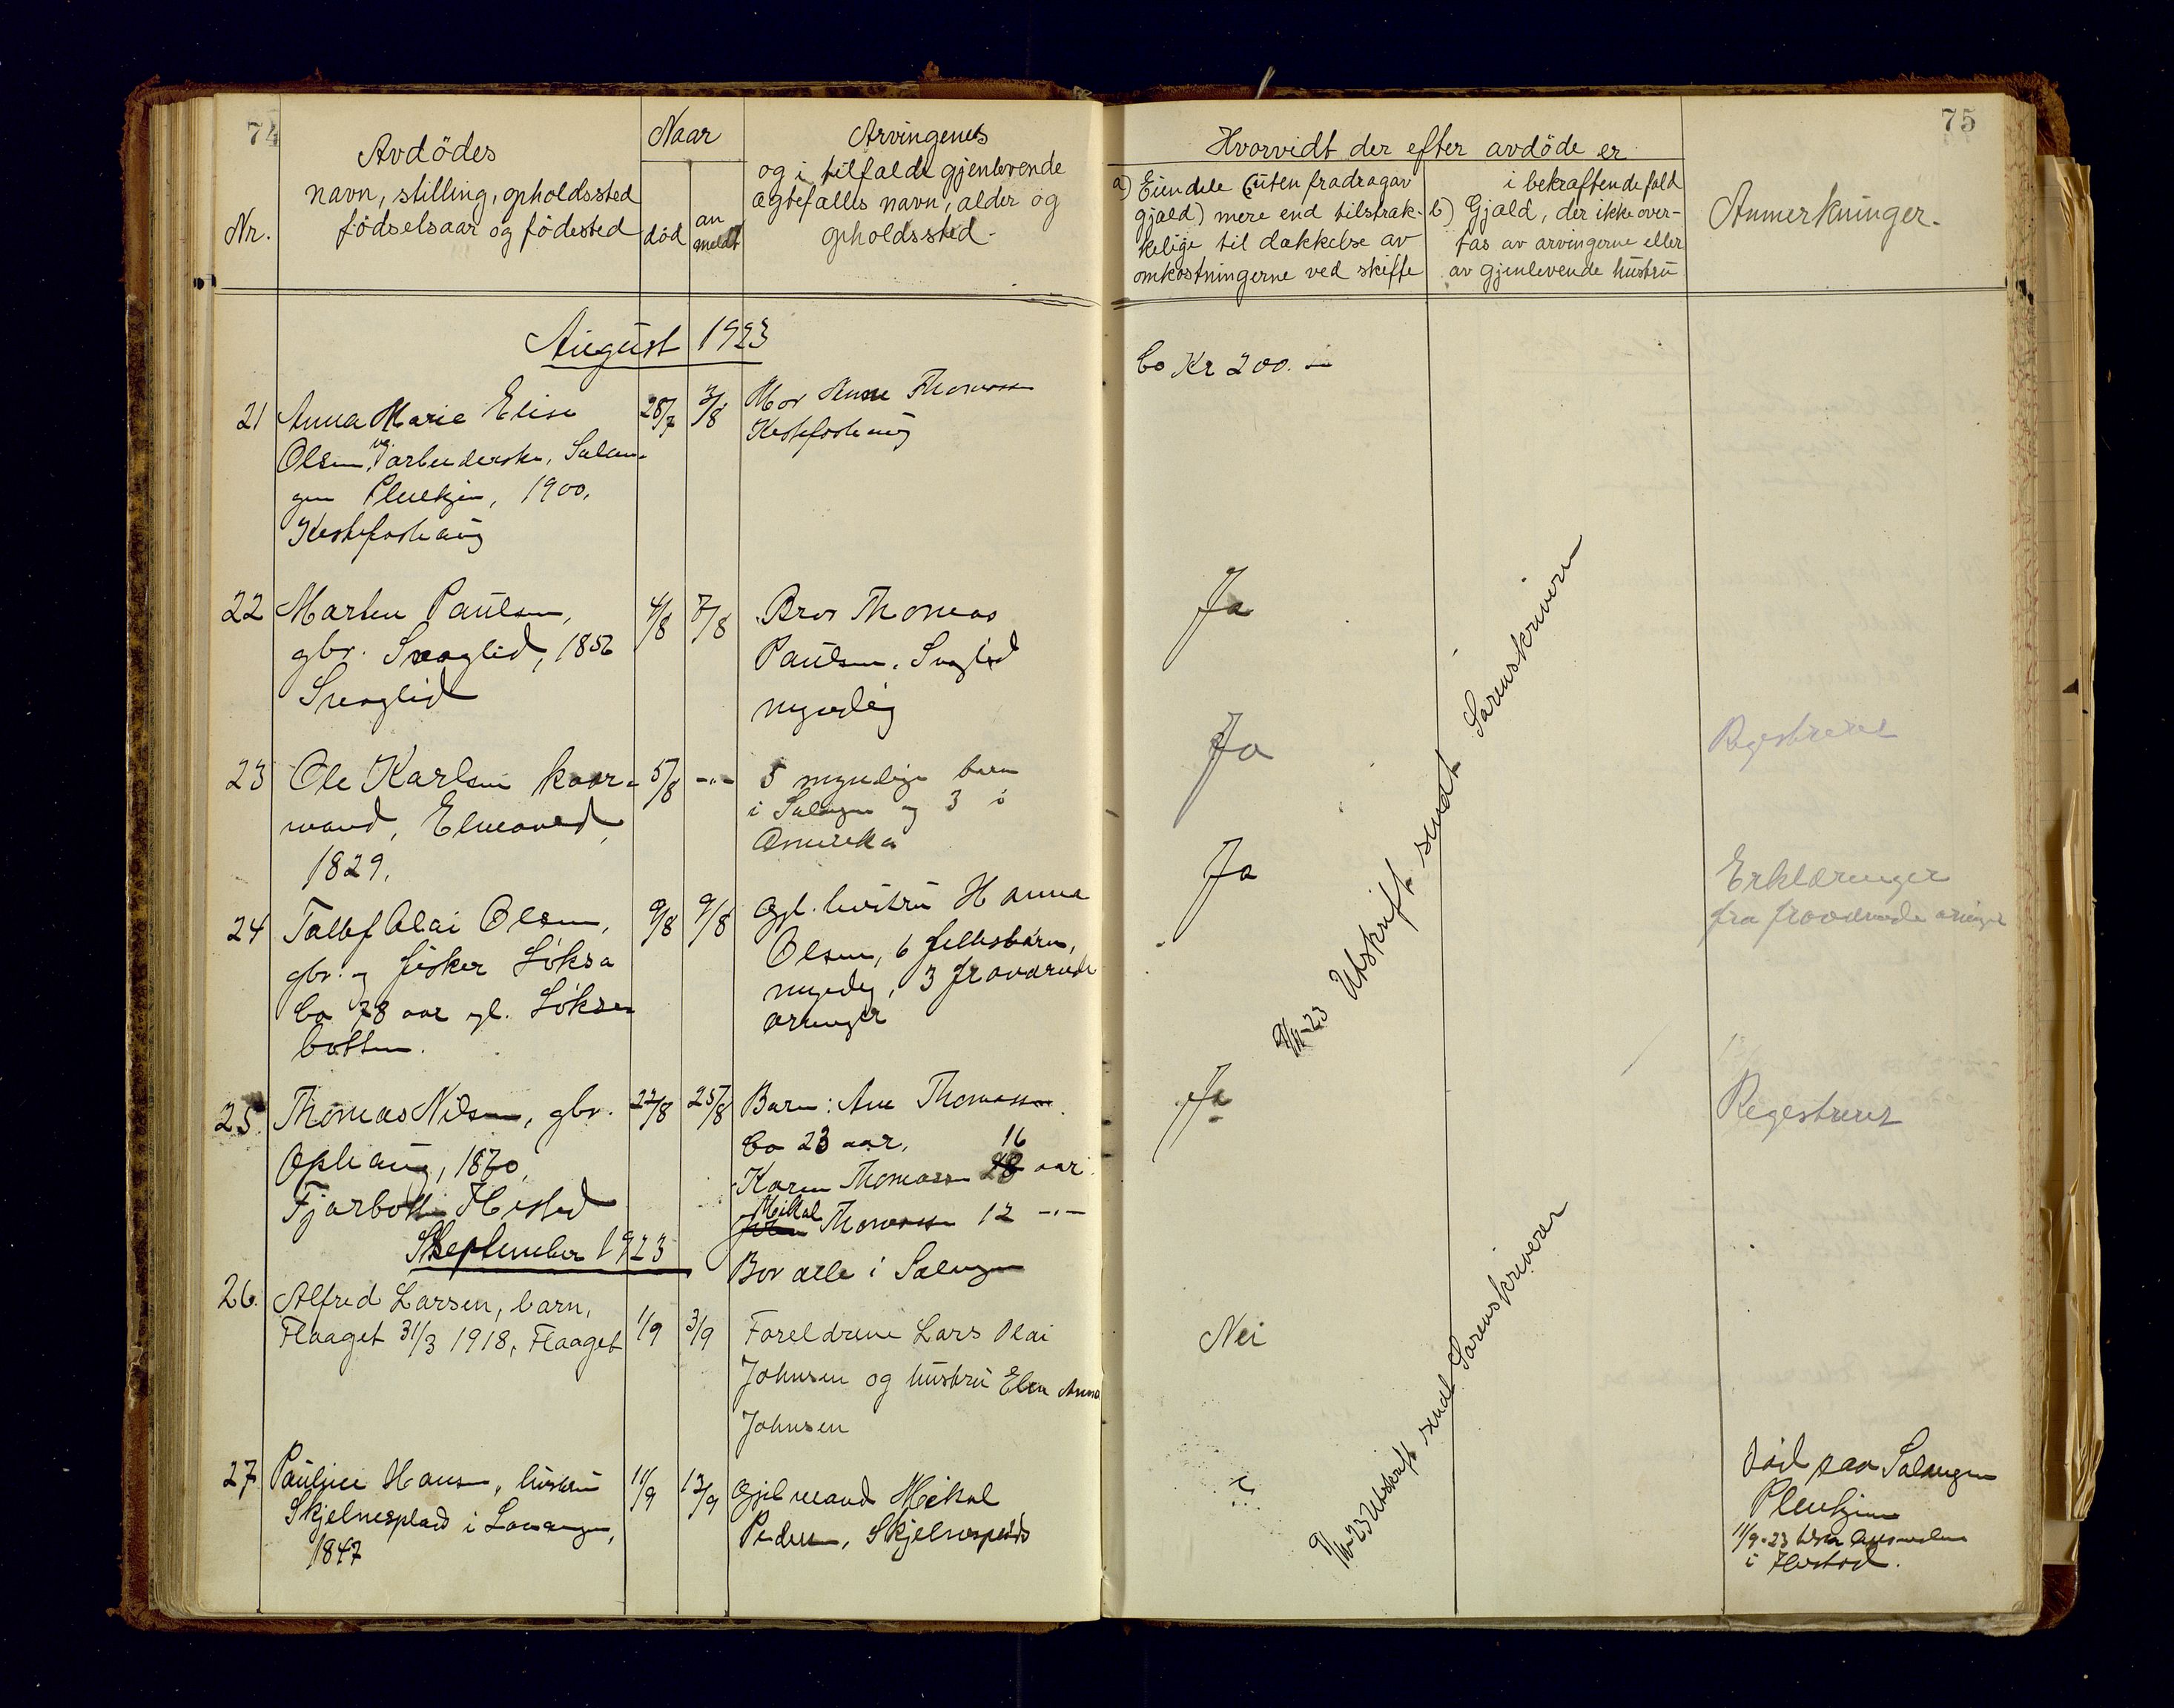 74
Nr.
Avdödes
navn, stilling, opholdssted
födselsaar og födested
Naar
död
an
meldt
Arvingenes
og i tilfælde gjenlevende
ægtefælles navn, alder og
opholdssted.
August 1923
21
Anna Marie Elise
Olsen, arbeiderske, Salan-
gen Pleiehjem, 1900,
28/7
3/8
Mor Anne Thomassen
22
Marten Paulsen,
gbr. Snoglid, 1856
Snoglid
4/8
7/8
Bror Thomas
Paulsen, Snoglid
myndig
23
Ole Karlsen kaar-
mand, Elvenes
1829.
5/8
-"-
5 myndige barn
i Salangen og 3 i
Amerika
24
Olai Olsen,
gbr. og fisker Löksa
ca 78 aar gl. Lökse
botten.
9/8
9/8
Gjl. hustru Hanna
Olsen, 6 fellesbarn,
myndig, 3 fraværende
arvinger
25.
Thomas Nilsen, gbr.
Ophaug, 1870,
22/8
25/8
Barn: Ane Thomassen
ca 23 aar,
Karen Thomassen 16 aar
Mikal Thomassen 12 -"-
Bor alle i Salangen
September 1923
26.
Alfred Larsen, barn,
Flaaget 31/3 1918, Flaaget
1/9
3/9
Foreldrene Lars Olai
Johnsen og hustru Elen Anna
Johnsen
27
Hansen, hustru
Skjelnesplads i Lavangen,
1847
11/9
13/9
Gjel mand Mikal
Pedersen, Skjelnesplads
75
Hvorvidt der efter avdöde er
a) Eiendele (uten fradrag av
gjæld) mere end tilstræk-
kelige til dækkelse av
omkostningerne ved skifte
i bekræftende fald
b) Gjæld, der ikke over-
tas av arvingerne eller
av gjenlevende hustru
Anmerkninger.
Ca Kr 200.
Ja
Ja
Registreret
Ja
Erklæringer
fra fraværende arvinger
Ja
Registreret
-23 Utskrift sendt Sorenskriveren
Nei
-23 Utskrift sendt Sorenskriveren
Död paa Salangen
Pleiehjem
11/9-23
i